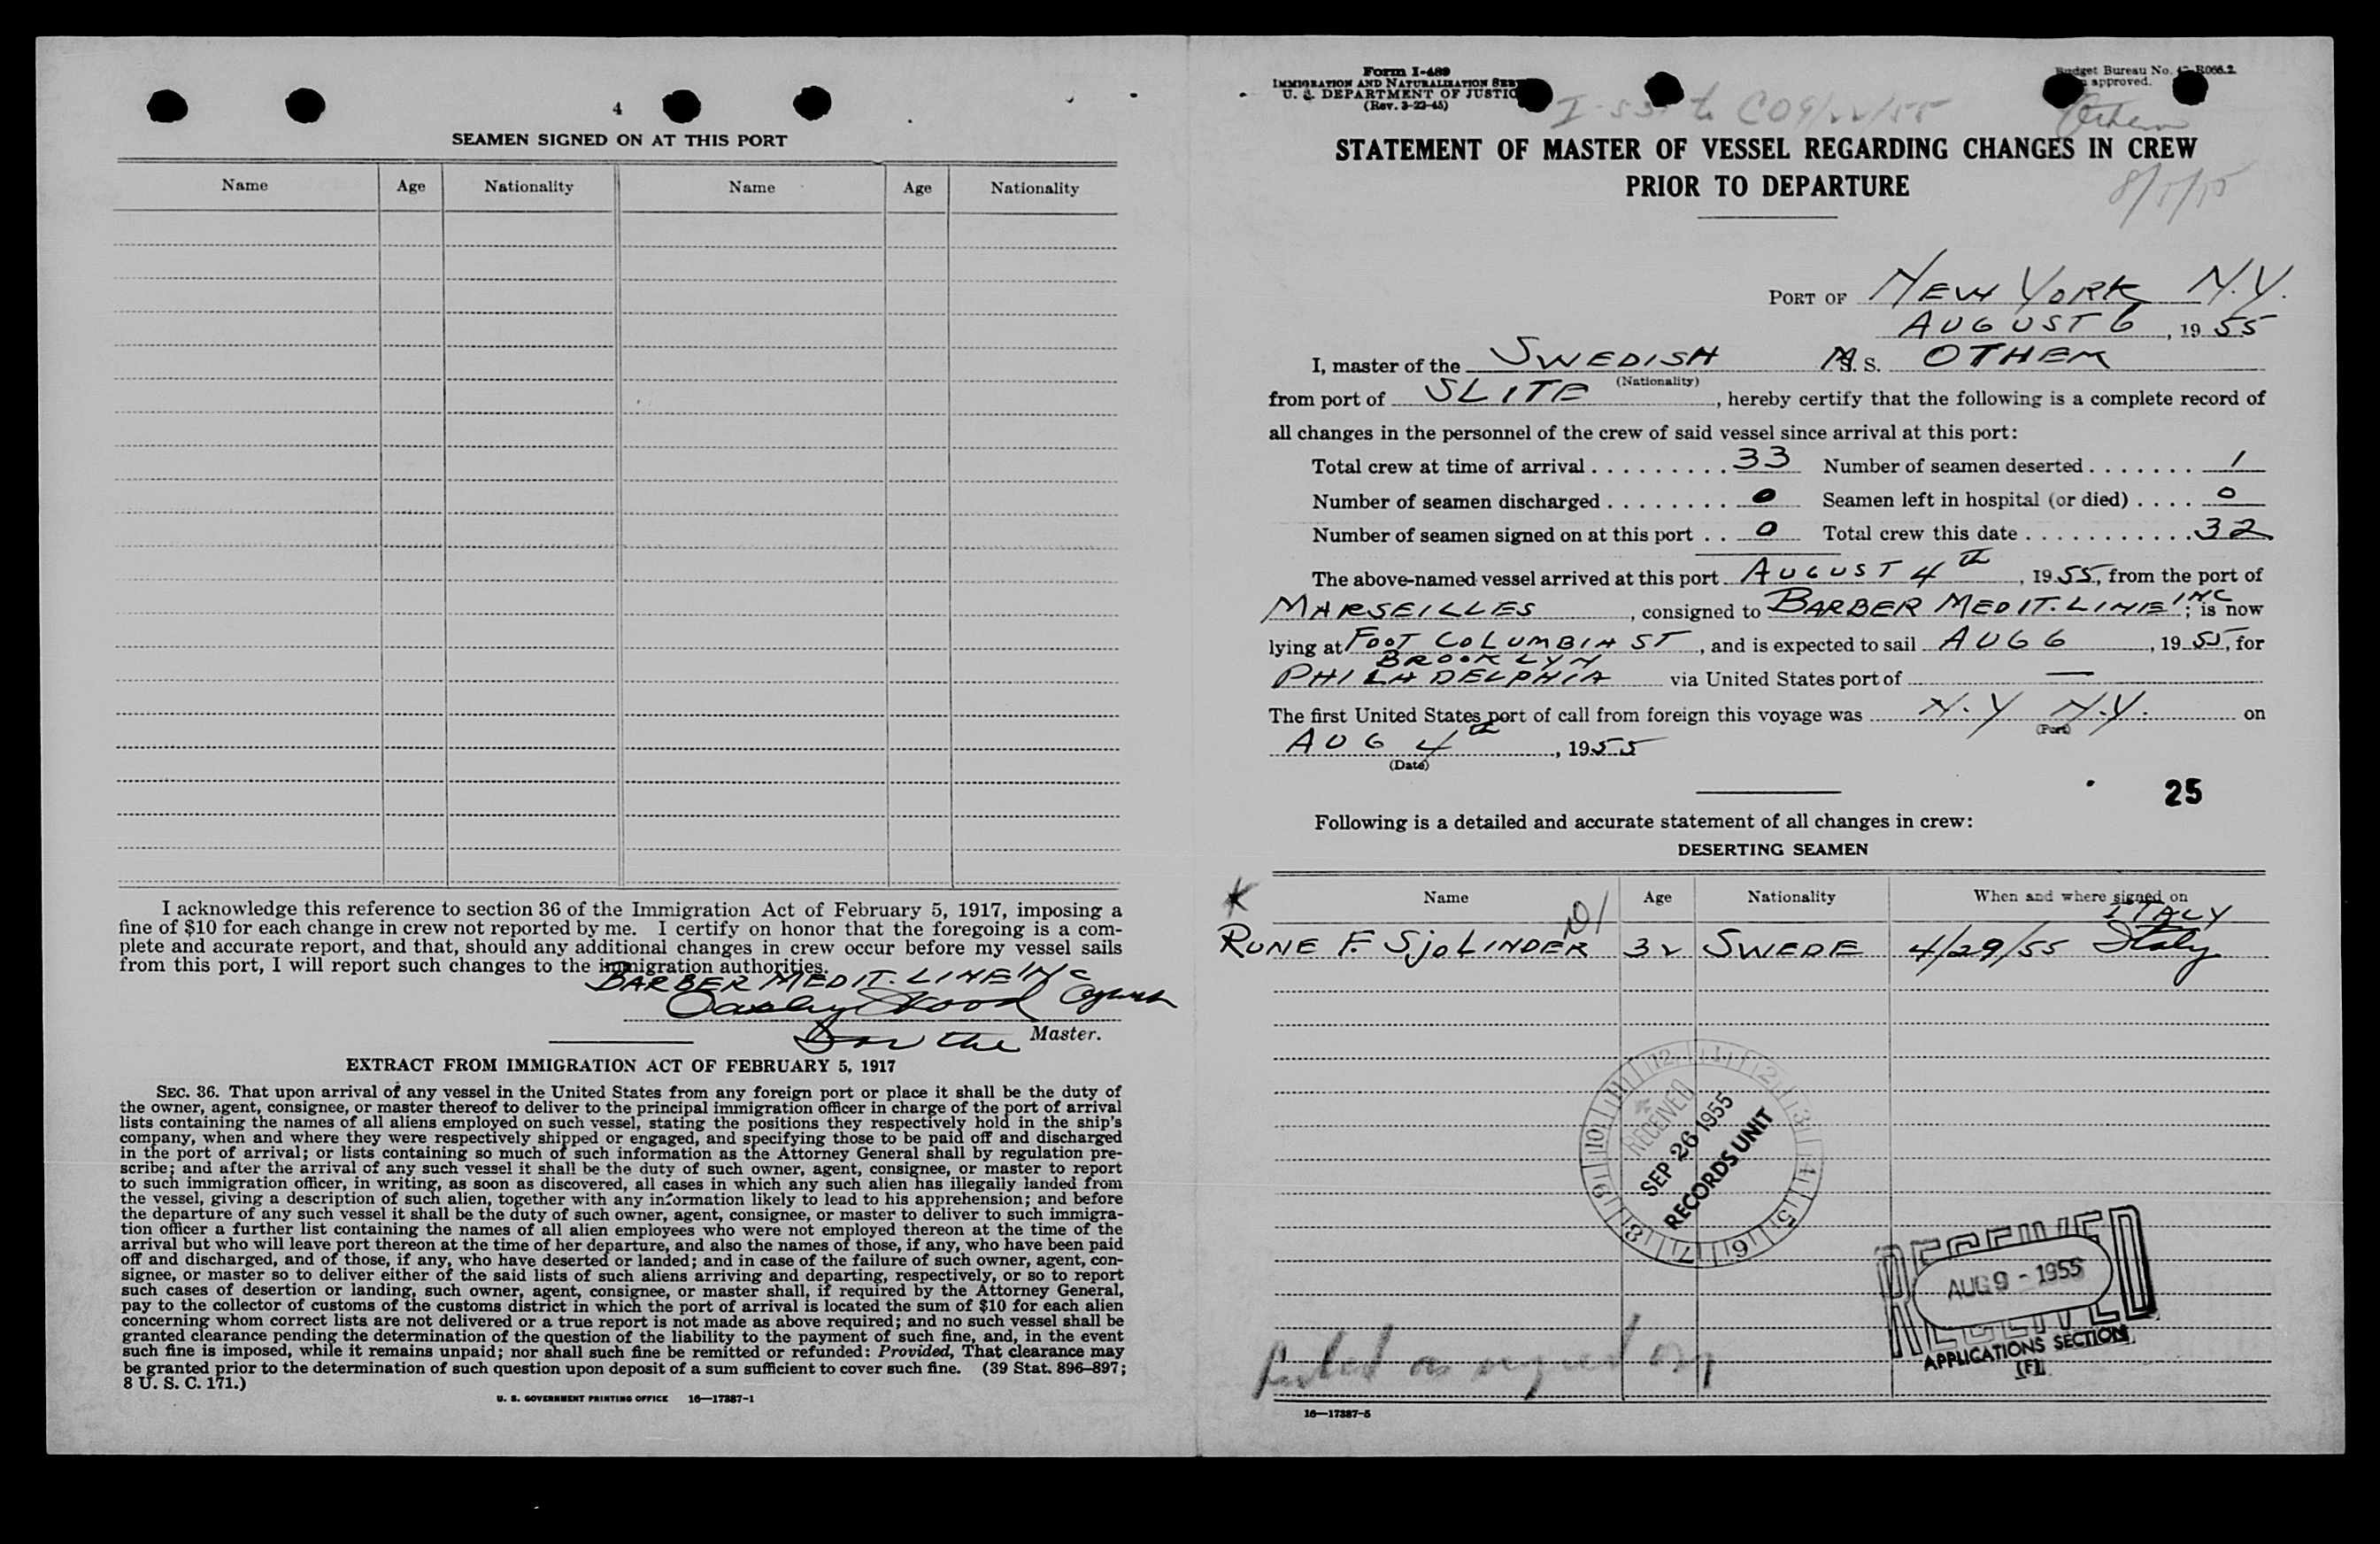 4
SEAMEN SIGNED ON AT THIS PORT
Name Age Nationality Name Age Nationality
I acknowledge this reference to section 36 of the Immigration Act of February 5, 1917, imposing a
fine of $10 for each change in crew not reported by me. I certify on honor that the foregoing is a com-
plete and accurate report, and that, should any additional changes in crew occur before my vessel sails
from this port, I will report such changes to the immigration authorities.
BARBER MEDIT. LINE INC
Master.
For the
EXTRACT FROM IMMIGRATION ACT OF FEBRUARY 5, 1917
SEC. 36. That upon arrival of any vessel in the United States from any foreign port or place it shall be the duty of
the owner, agent, consignee, or master thereof to deliver to the principal immigration officer in charge of the port of arrival
lists containing the names of all aliens employed on such vessel, stating the positions they respectively hold in the ship's
company, when and where they were respectively shipped or engaged, and specifying those to be paid off and discharged
in the port of arrival; or lists containing so much of such information as the Attorney General shall by regulation pre-
scribe; and after the arrival of any such vessel it shall be the duty of such owner, agent, consignee, or master to report
to such immigration officer, in writing, as soon as discovered, all cases in which any such alien has illegally landed from
the vessel, giving a description of such alien, together with any information likely to lead to his apprehension; and before
the departure of any such vessel it shall be the duty of such owner, agent, consignee, or master to deliver to such immigra-
tion officer a further list containing the names of all alien employees who were not employed thereon at the time of the
arrival but who will leave port thereon at the time of her departure, and also the names of those, if any, who have been paid
off and discharged, and of those, if any, who have deserted or landed; and in case of the failure of such owner, agent, con-
signee, or master so to deliver either of the said lists of such aliens arriving and departing, respectively, or so to report
such cases of desertion or landing, such owner, agent, consignee, or master shall, if required by the Attorney General,
pay to the collector of customs of the customs district in which the port of arrival is located the sum of $10 for each alien
concerning whom correct lists are not delivered or a true report is not made as above required; and no such vessel shall be
granted clearance pending the determination of the question of the liability to the payment of such fine, and, in the event
such fine is imposed, while it remains unpaid; nor shall such fine be remitted or refunded: Provided, That clearance may
be granted prior to the determination of such question upon deposit of a sum sufficient to cover such fine. (39 Stat. 896–897;
8 U. S. C. 171.)
U. S. GOVERNMENT PRINTING OFFICE 16—17387-1
Form I-489
IMMIGRATION AND NATURALIZATION
U. S. DEPARTMENT OF
(Rev. 3-22-45)
Budget Bureau No.
approved.
Othem
STATEMENT OF MASTER OF VESSEL REGARDING CHANGES IN CREW
PRIOR TO DEPARTURE
8/5/55
PORT OF NEW YORK N.Y.
AUGUST 6, 19 55
I, master of the SWEDISH M. S. OTHEM
(Nationality)
from port of SLITE, hereby certify that the following is a complete record of
all changes in the personnel of the crew of said vessel since arrival at this port:
Total crew at time of arrival . . . . . . . . . 33 Number of seamen deserted . . . . . . . 1
Number of seamen discharged . . . . . . . . 0 Seamen left in hospital (or died) . . . . 0
Number of seamen signed on at this port . . 0 Total crew this date . . . . . . . . . . . . 32
The above-named vessel arrived at this port AUGUST 4th, 19 55, from the port of
MARSEILLES, consigned to BARBER MEDIT. LINE INC; is now
lying at FOOT COLUMBIA ST, and is expected to sail AUG 6, 19 55, for
BROOKLYN
PHILADELPHIA via United States port of —
The first United States port of call from foreign this voyage was N.Y N.Y. on
(Port)
AUG 4th, 1955
(Date)
25
Following is a detailed and accurate statement of all changes in crew:
DESERTING SEAMEN
Name Age Nationality When and where signed on
ITALY
RUNE F. SJOLINDER 32 SWEDE 4/29/55 Italy
12 1 2 3 4 5 6 7 8 9 10 11
RECEIVED
SEP 26 1955
RECORDS UNIT
RECEIVED
AUG 9 - 1955
APPLICATIONS SECTION
(F)
16—17387-5